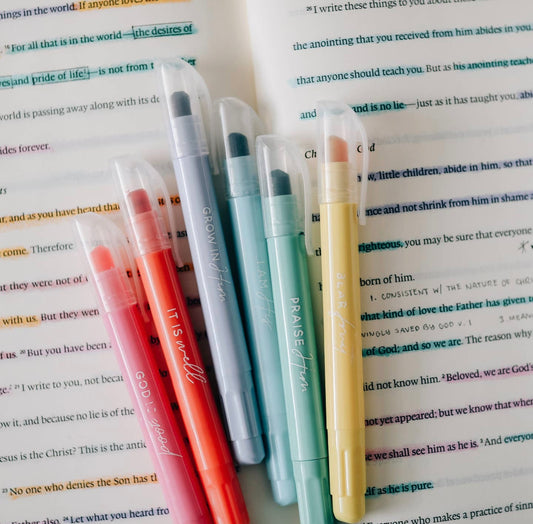 things in the world. If anyone loves
¹⁶ For all that is in the world—the desires of
eyes and pride of life—is not from
world is passing away along with its
abides forever.
and as you have heard that
come. Therefore
that they were not of
with us. But they were
of us. ²⁰ But you have been
²¹ I write to you, not because
know it, and because no lie is of the
Jesus is the Christ? This is the
²³ No one who denies the Son has
Father also. ²⁴ Let what you heard from
²⁶ I write these things to you about
the anointing that you received from him abides in you,
that anyone should teach you. But as his anointing teaches
and is no lie—just as it has taught you,
Children of God
now, little children, abide in him, so that
and not shrink from him in shame
righteous, you may be sure that everyone
born of him.
1. CONSISTENT W/ THE NATURE OF
what kind of love the Father has given to
SAVED BY GOD V. 1
of God; and so we are. The reason why
did not know him. ² Beloved, we are God's
not yet appeared; but we know that when
we shall see him as he is. ³ And everyone
as he is pure.
Everyone who makes a practice of
GOD IS good
IT IS well
GROW IN Him
I AM His
PRAISE Him